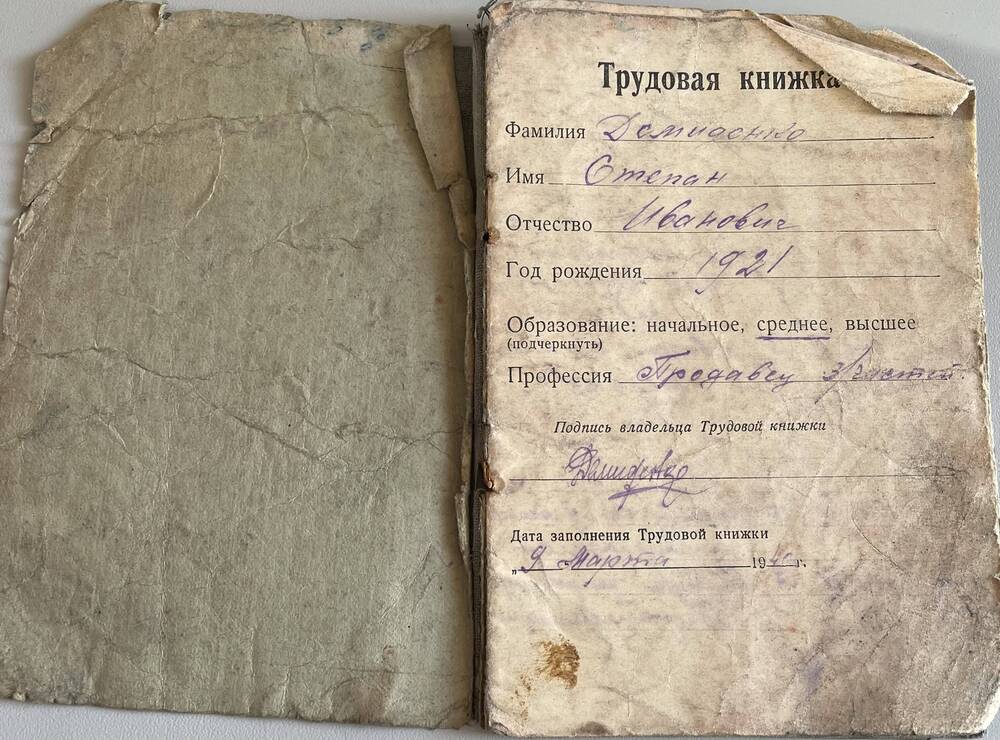 Трудовая книжка
Фамилия Демиденко
Имя Степан
Отчество Иванович
Год рождения 1921
Образование: начальное, среднее, высшее
(подчеркнуть)
Профессия Продавец з/частей
Подпись владельца Трудовой книжки
Дата заполнения Трудовой книжки
„9 Марта 19 г.